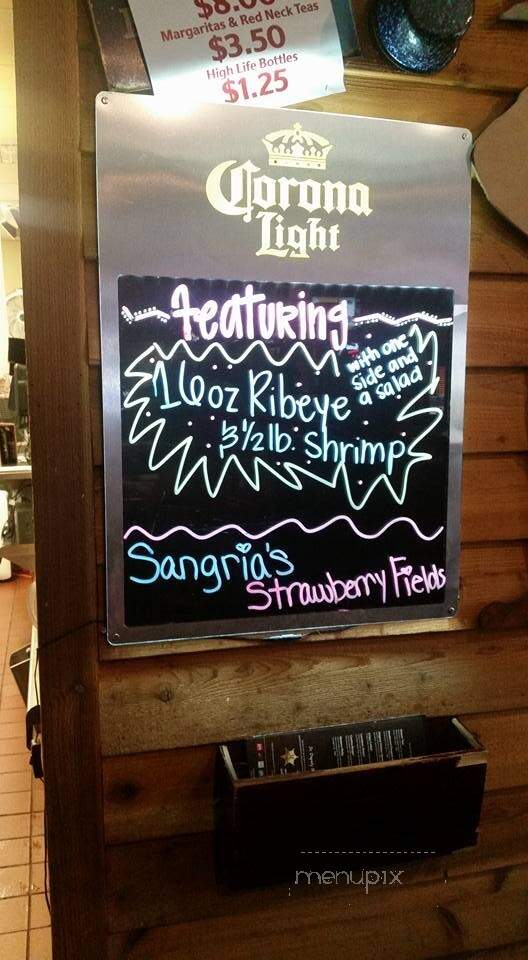 $8.00
Margaritas & Red Neck Teas
$3.50
High Life Bottles
$1.25
Corona
Light
Featuring
16oz Ribeye
with one
side and
a salad
3 1/2 lb. Shrimp
Sangria's
Strawberry Fields
menupix